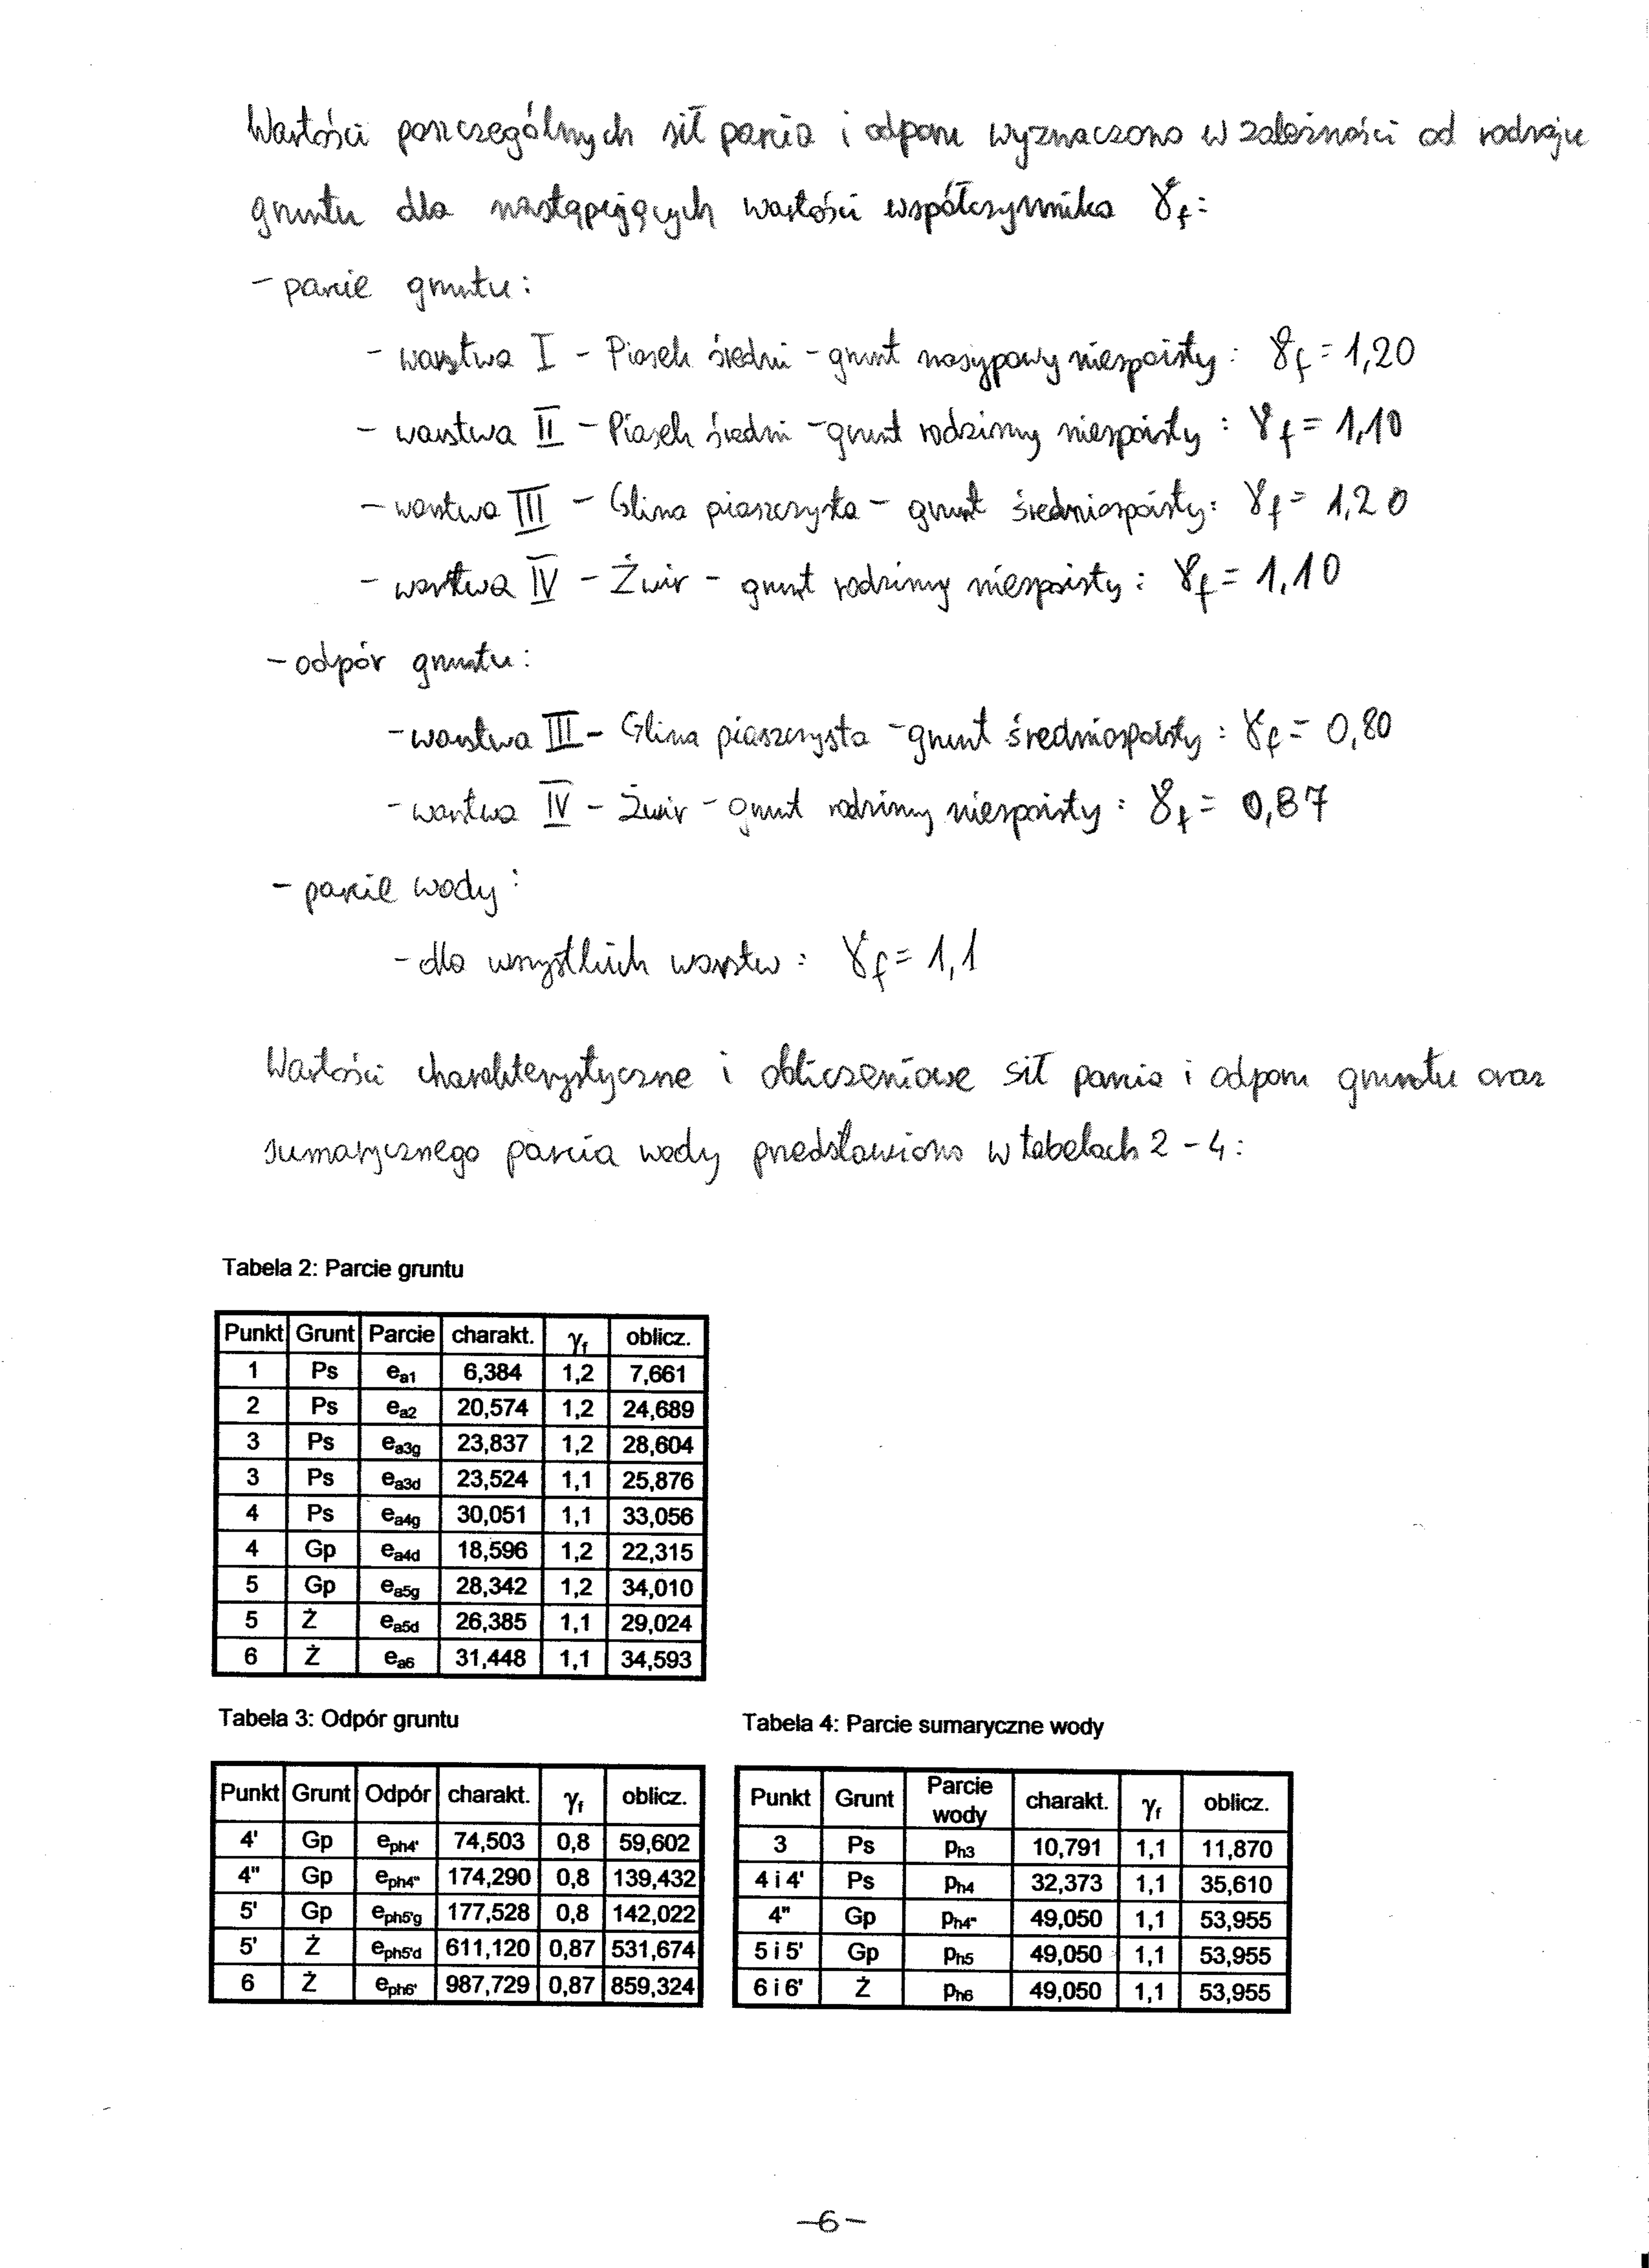 Wartości poszczególnych sił parcia i odporu wyznaczono w zależności od rodzaju
gruntu dla następujących wartości współczynnika γf:
- parcie gruntu:
- warstwa I - Piasek średni - grunt nasypowy niespoisty: γf = 1,20
- warstwa II - Piasek średni - grunt rodzimy niespoisty: γf = 1,10
- warstwa III - Glina piaszczysta - grunt średniospoisty: γf = 1,20
- warstwa IV - Żwir - grunt rodzimy niespoisty: γf = 1,10
- odpór gruntu:
- warstwa III - Glina piaszczysta - grunt średniospoisty: γf = 0,80
- warstwa IV - Żwir - grunt rodzimy niespoisty: γf = 0,87
- parcie wody:
- dla wszystkich warstw: γf = 1,1
Wartości charakterystyczne i obliczeniowe sił parcia i odporu gruntu oraz
sumarycznego parcia wody przedstawiono w tabelach 2 - 4:
Tabela 2: Parcie gruntu
Punkt Grunt Parcie charakt. γf oblicz.
1 Ps ea1 6,384 1,2 7,661
2 Ps ea2 20,574 1,2 24,689
3 Ps ea3g 23,837 1,2 28,604
3 Ps ea3d 23,524 1,1 25,876
4 Ps ea4g 30,051 1,1 33,056
4 Gp ea4d 18,596 1,2 22,315
5 Gp ea5g 28,342 1,2 34,010
5 Ż ea5d 26,385 1,1 29,024
6 Ż ea6 31,448 1,1 34,593
Tabela 3: Odpór gruntu
Punkt Grunt Odpór charakt. γf oblicz.
4' Gp eph4' 74,503 0,8 59,602
4" Gp eph4" 174,290 0,8 139,432
5' Gp eph5'g 177,528 0,8 142,022
5' Ż eph5'd 611,120 0,87 531,674
6 Ż eph6' 987,729 0,87 859,324
Tabela 4: Parcie sumaryczne wody
Punkt Grunt Parcie wody charakt. γf oblicz.
3 Ps ph3 10,791 1,1 11,870
4 i 4' Ps ph4 32,373 1,1 35,610
4" Gp ph4" 49,050 1,1 53,955
5 i 5' Gp ph5 49,050 1,1 53,955
6 i 6' Ż ph6 49,050 1,1 53,955
-6-